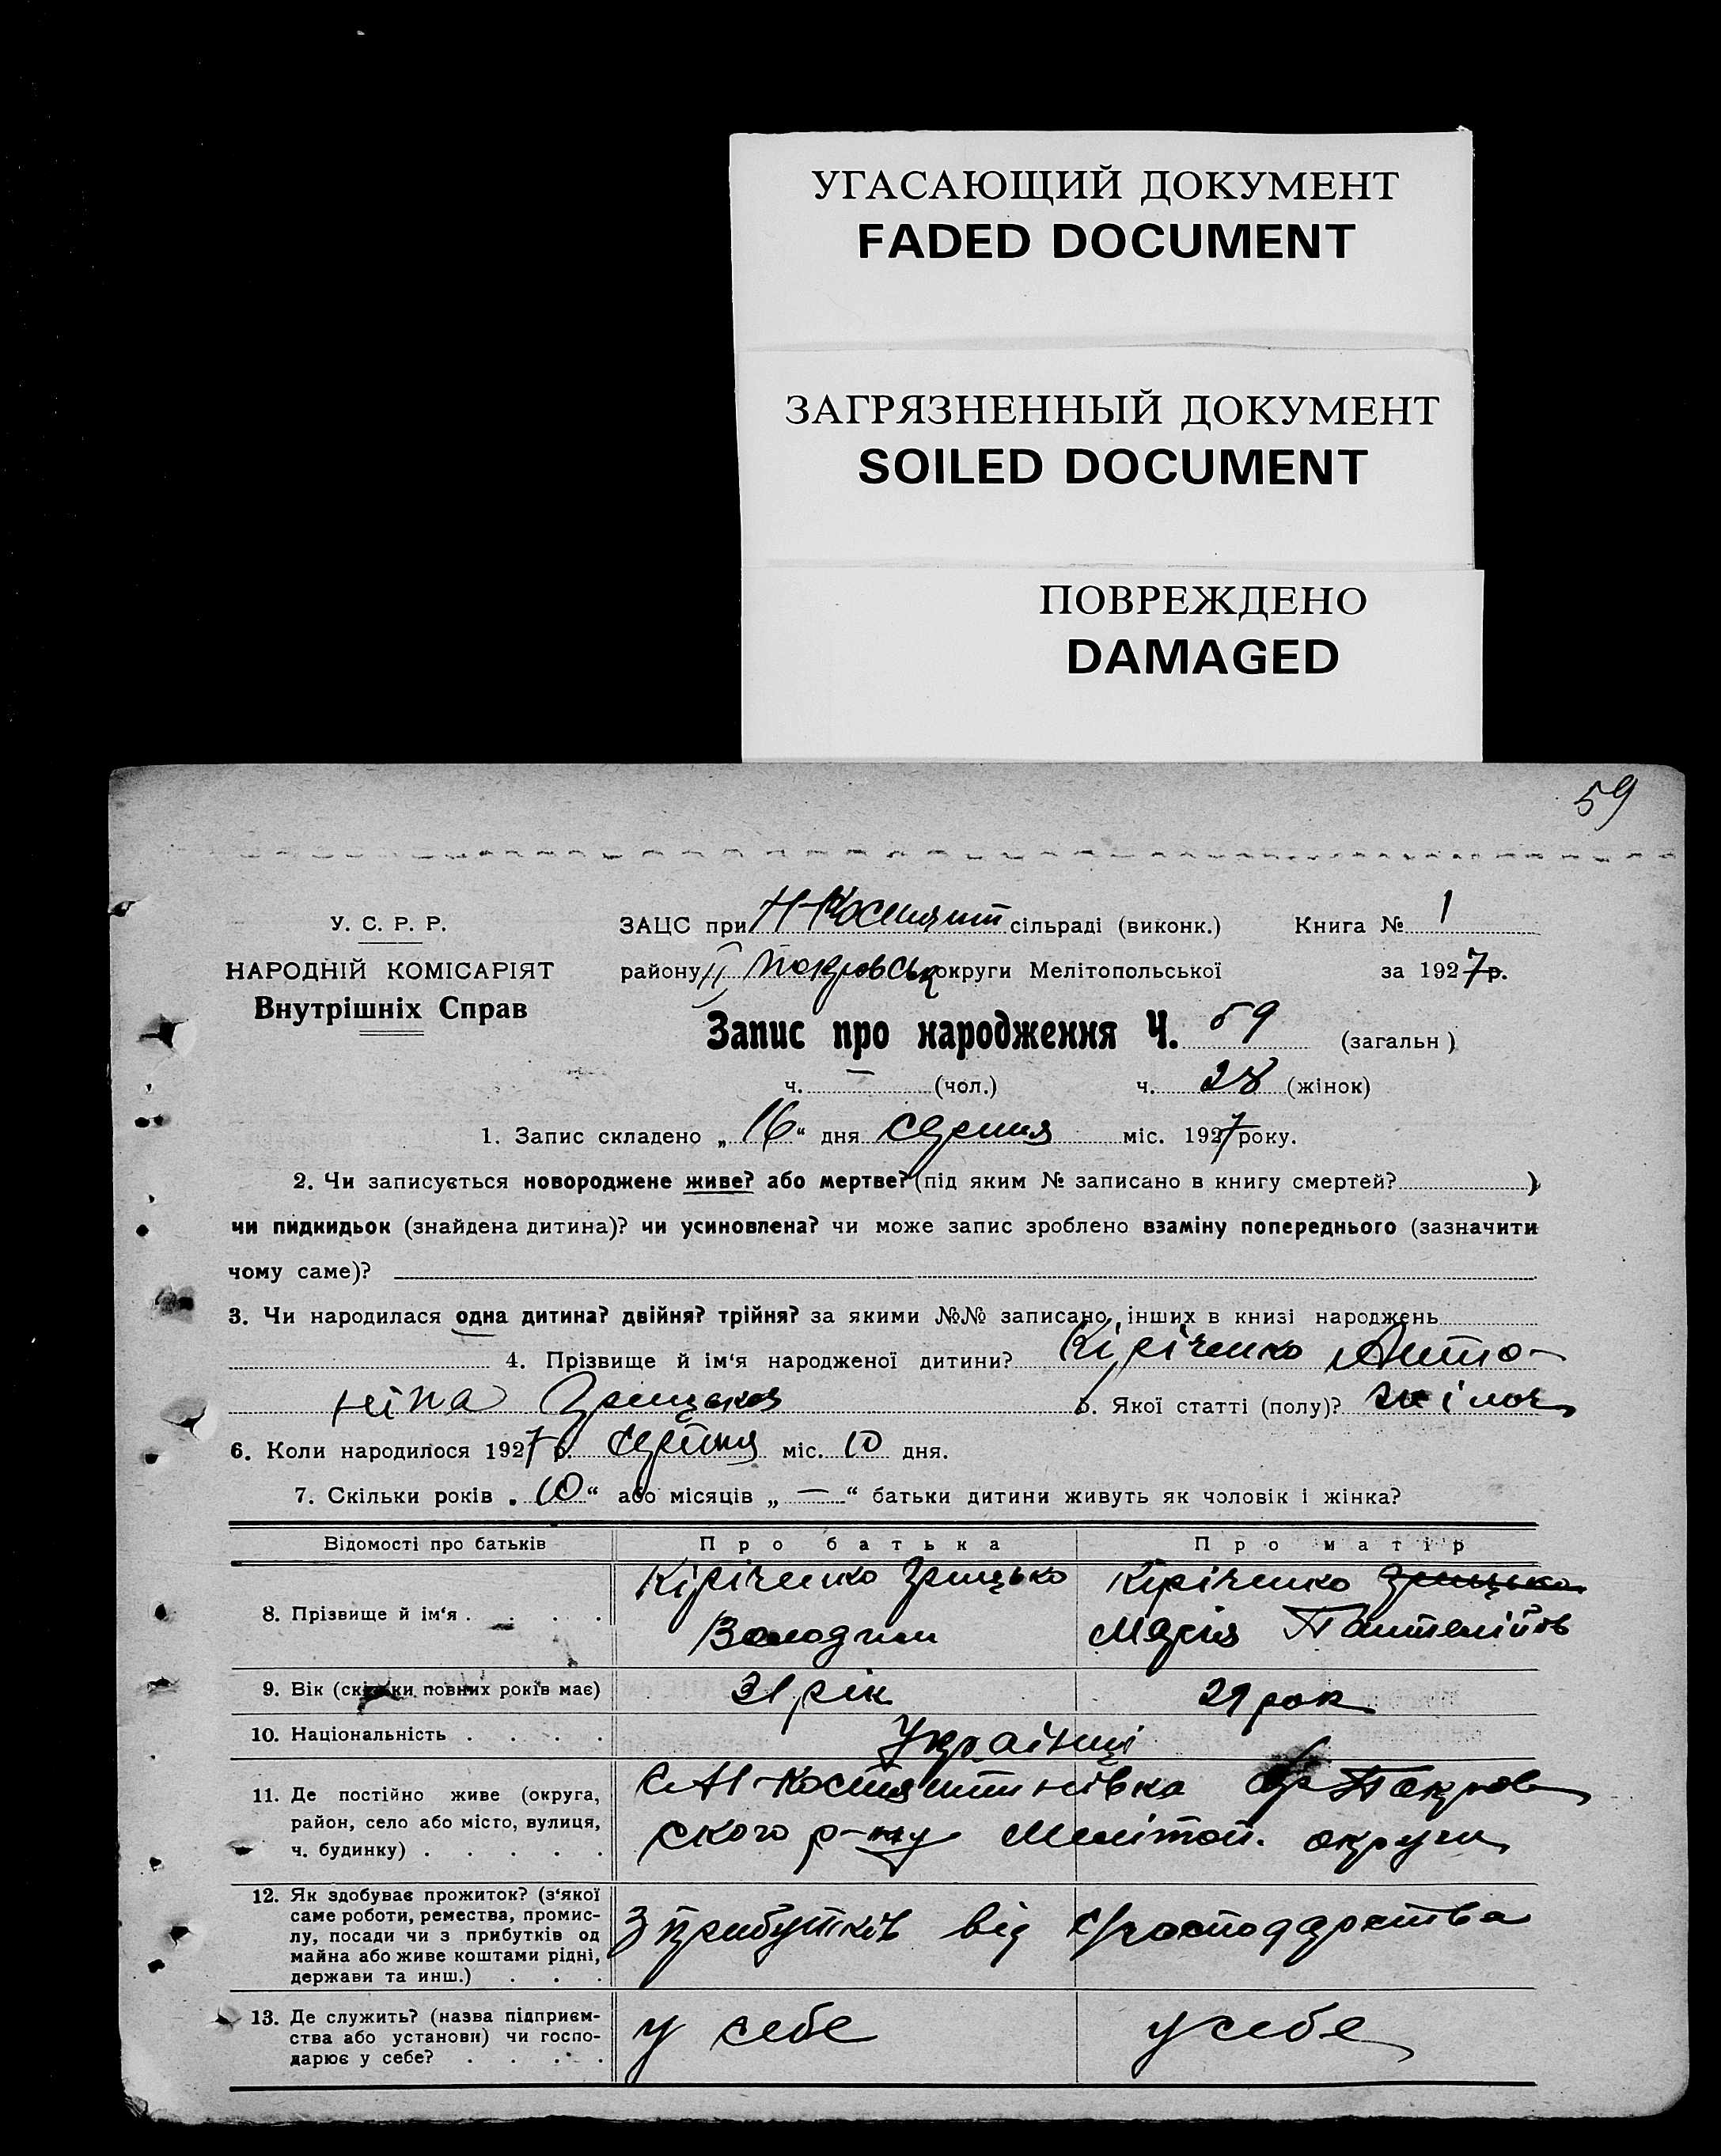 УГАСАЮЩИЙ ДОКУМЕНТ
FADED DOCUMENT
ЗАГРЯЗНЕННЫЙ ДОКУМЕНТ
SOILED DOCUMENT
ПОВРЕЖДЕНО
DAMAGED
59
У. С. Р. Р.
НАРОДНІЙ КОМІСАРІЯТ
Внутрішніх Справ
ЗАЦС при Н-Костянт сільраді (виконк.) Книга № 1
району II Покровськ округи Мелітопольської за 1927р.
Запис про народження Ч. 59 (загальн)
ч. — (чол.) ч. 28 (жінок)
1. Запис складено „16“ дня серпня міс. 1927 року.
2. Чи записується новороджене живе? або мертве? (під яким № записано в книгу смертей?)
чи пидкидьок (знайдена дитина)? чи усиновлена? чи може запис зроблено взаміну попереднього (зазначити
чому саме)?
3. Чи народилася одна дитина? двійня? трійня? за якими №№ записано інших в книзі народжень
4. Прізвище й ім'я народженої дитини? Кіріченко Анто-
ніна Грицьков 5. Якої статті (полу)? жіноч
6. Коли народилося 1927 р. серпня міс. 10 дня.
7. Скільки років „10“ або місяців „—“ батьки дитини живуть як чоловік і жінка?
Відомості про батьків Про батька Про матір
8. Прізвище й ім'я . . . . Кіріченко Грицько Кіріченко Грицько
Володим Марія Пантелійов
9. Вік (скільки повних років має) 31 рік 29 рок
10. Національність . . . . Українці
11. Де постійно живе (округа,
район, село або місто, вулиця,
ч. будинку) . . . . .
с. Н-Костянтинівка Покров
ского р-ну Меліт. округи
12. Як здобуває прожиток? (з'якої
саме роботи, ремества, промис-
лу, посади чи з прибутків од
майна або живе коштами рідні,
держави та инш.) . . .
З прибутків від господарства
13. Де служить? (назва підприєм-
ства або установи) чи госпо-
дарює у себе? . . . .
у себе у себе